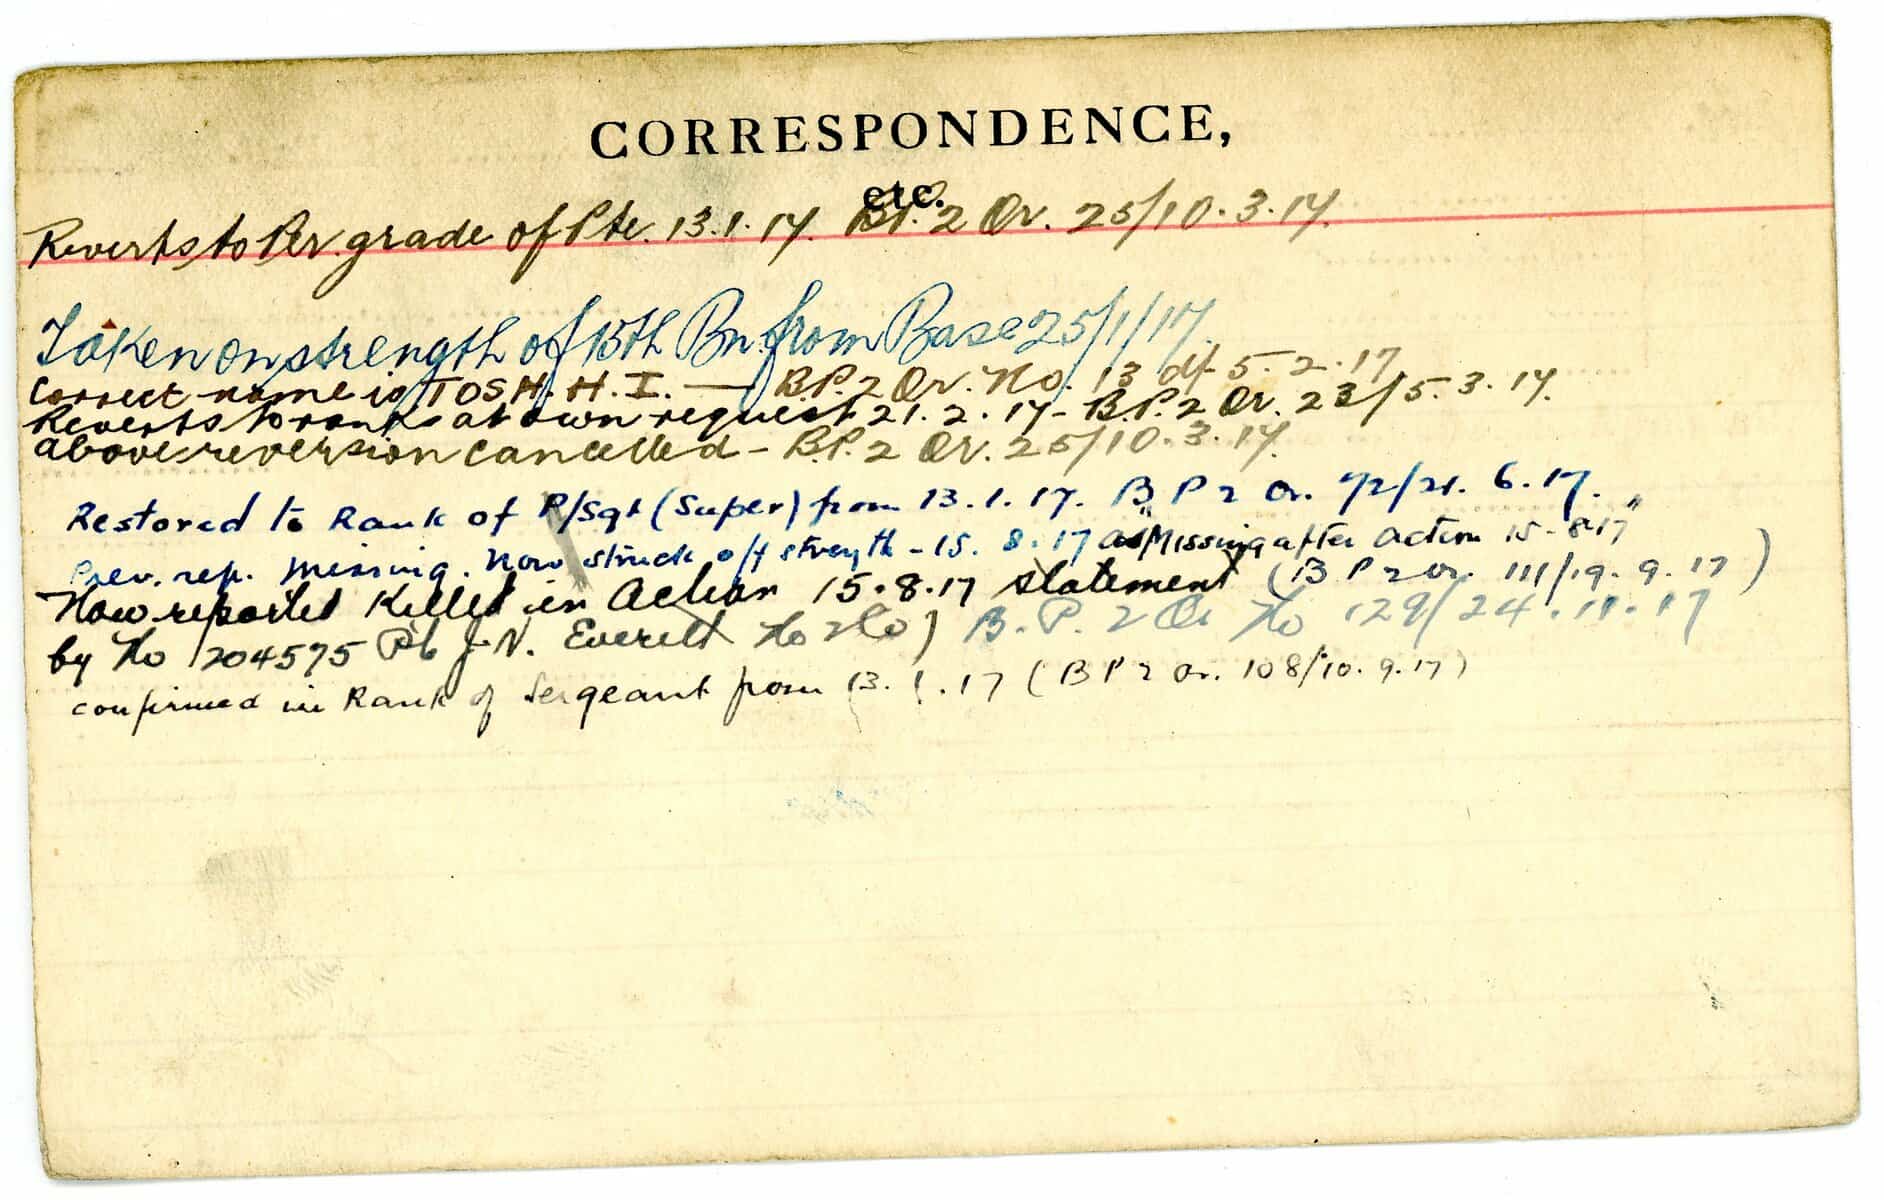 CORRESPONDENCE,
etc.
Reverts to Per. grade of Pte. 13.1.17. B.P.2 Or. 25/10.3.17.
Taken on strength of 15th Bn. from Base 25/1/17.
Correct name is TOSH. H. I. — B.P.2 Or. No. 13 df 5.2.17
Reverts to ranks at own request 21.2.17 - B.P.2 Or. 23/5.3.17.
above reversion cancelled - B.P.2 Or. 25/10.3.17.
Restored to Rank of P/Sgt (Super) from 13.1.17. B P 2 Or. 72/21.6.17.
Prev. rep. missing. now struck off strength - 15.8.17 as "Missing after action 15-8-17"
(B P 2 Or. 111/19.9.17)
Now reported Killed in Action 15.8.17 statement
by No 204575 Pte J. V. Everett B.P. 2 Or No 129/24.11.17
confirmed in Rank of Sergeant from 13.1.17 (B P 2 Or. 108/10.9.17)